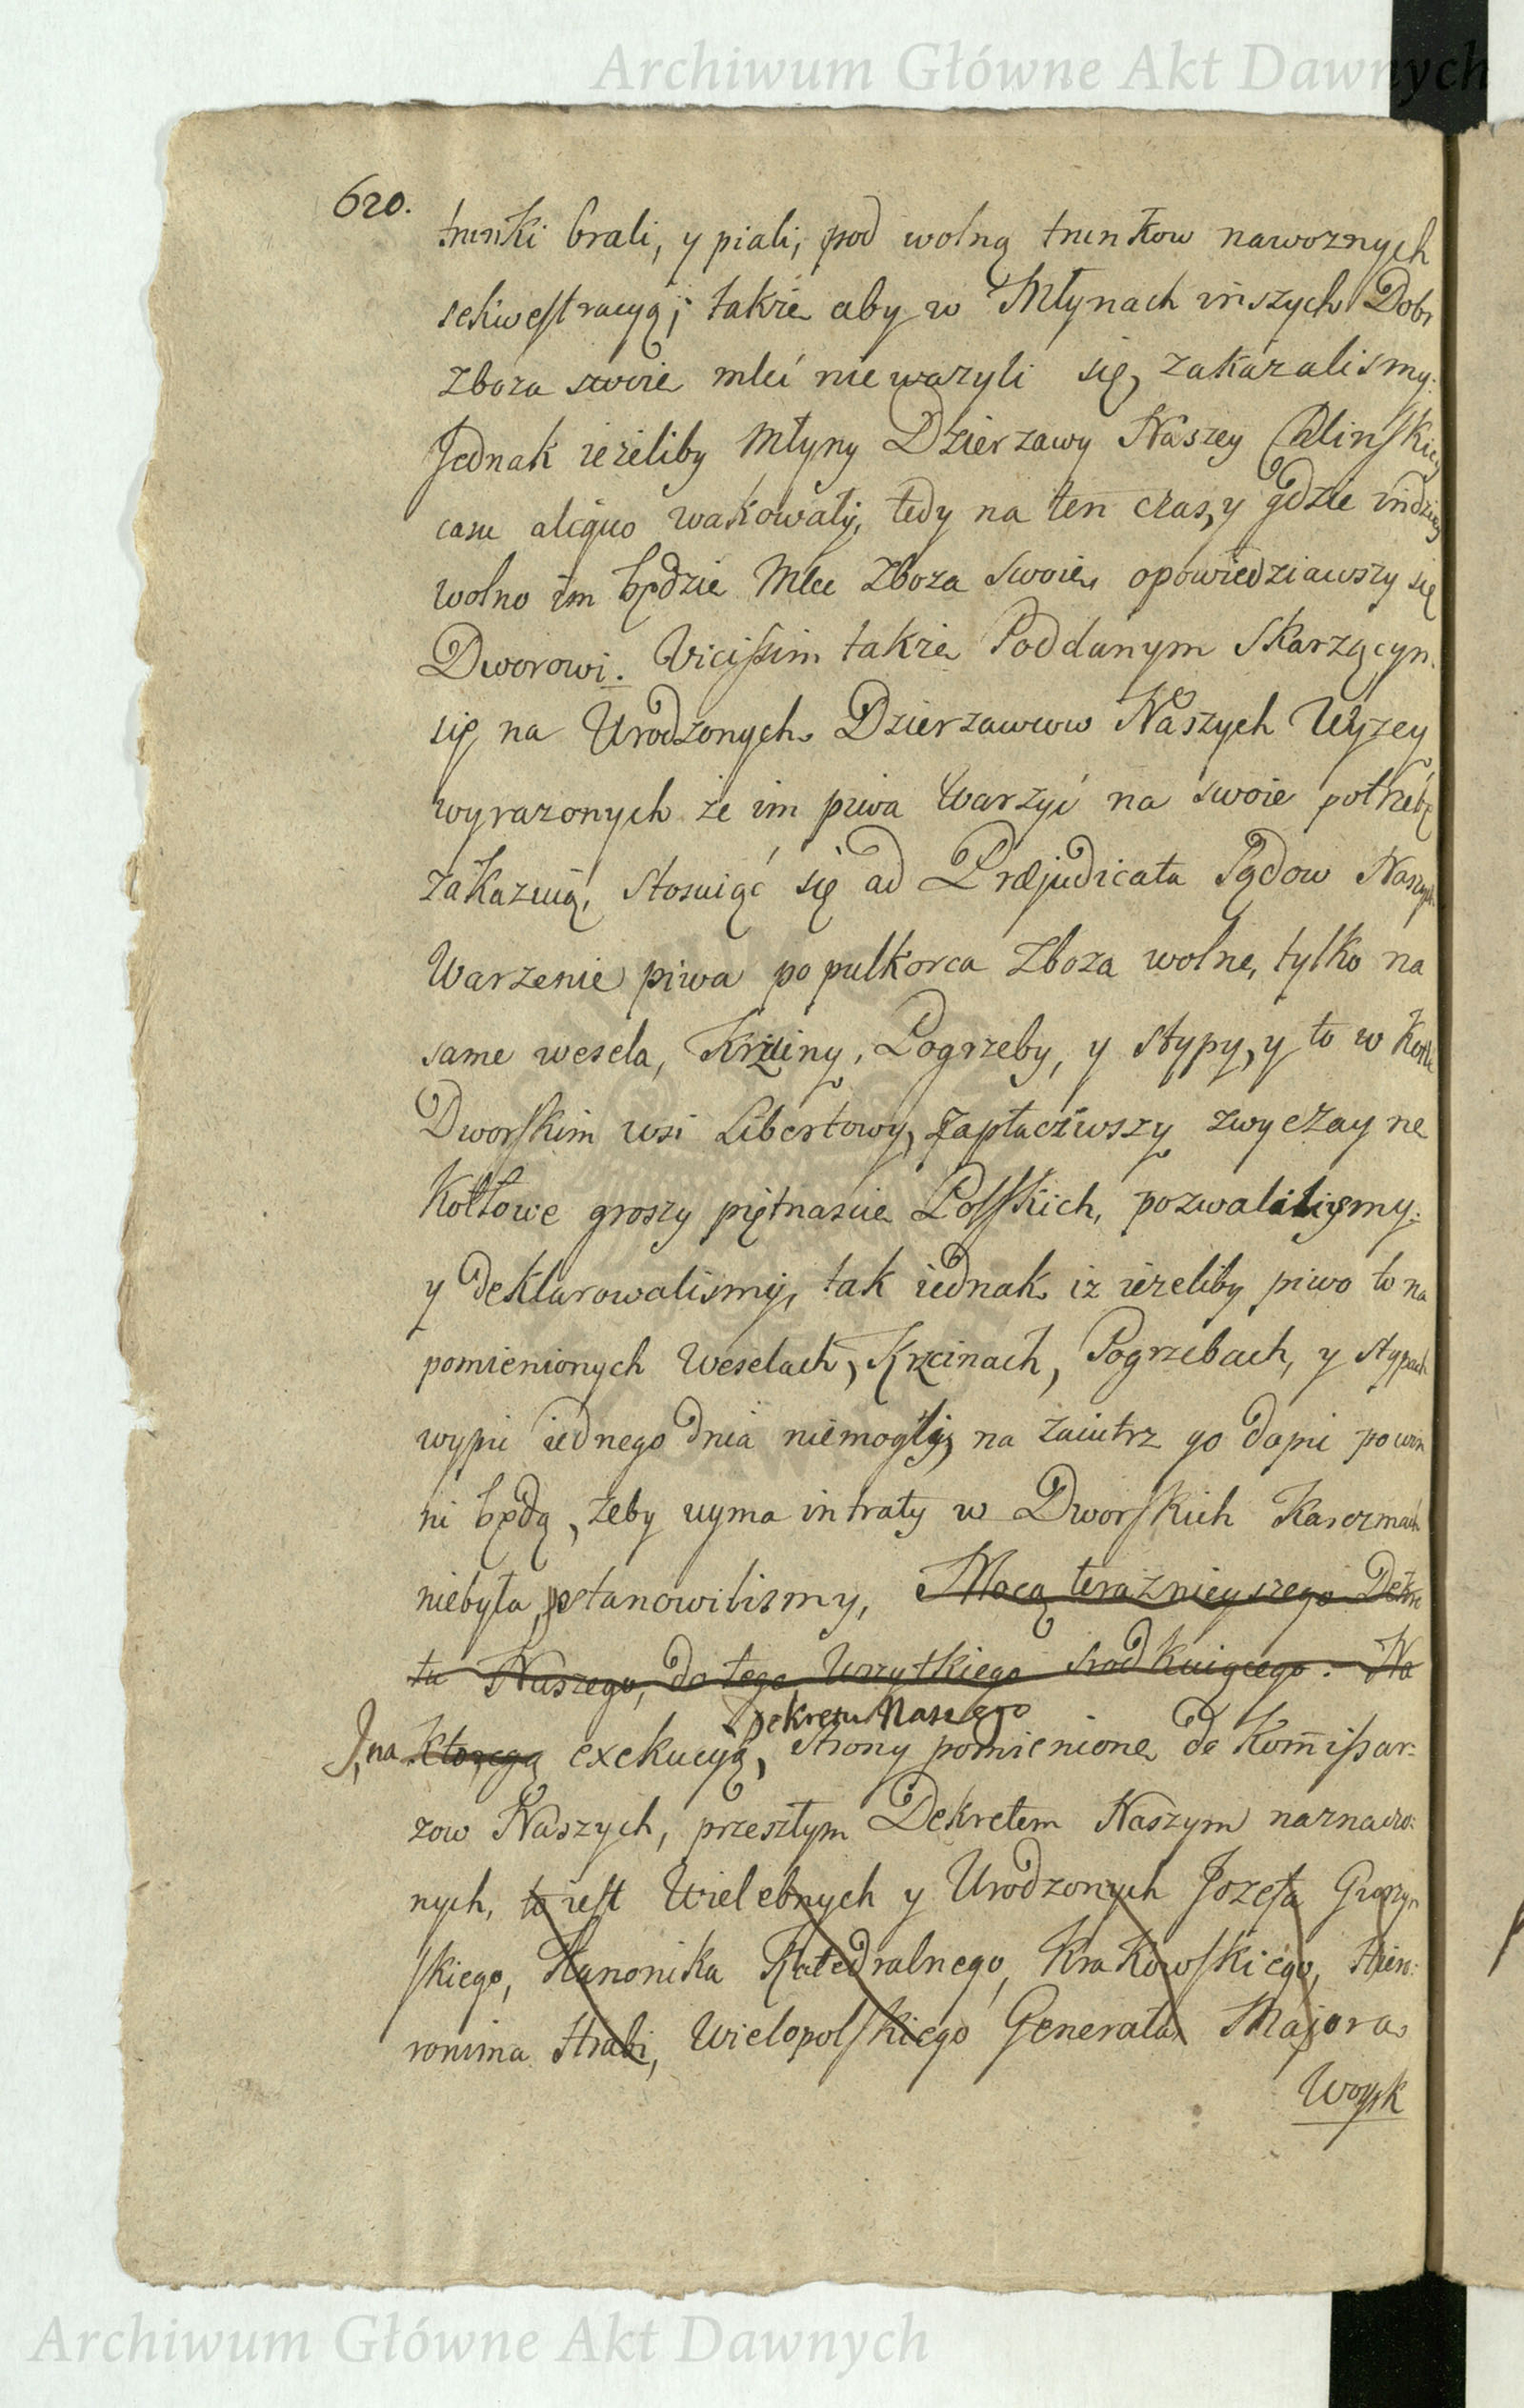 Archiwum Główne Akt Dawnych
620.
trunki brali, y piali, pod wolną trunkow nawoznych
sekwestracyą; takze aby w Młynach inszych Dobr
Zboza swoie mleć nie wazyli się, zakazalismy.
Jednak iezeliby Młyny Dzierzawy Naszey
casu aliquo wakowały, tedy na ten czas, y gdzie indziey
wolno im będzie Mlec Zboza Swoie, opowiedziawszy się
Dworowi. Vicissim takze Poddanym Skarzącym
się na Urodzonych Dzierzawcow Naszych Wyzey
wyrazonych ze im piwa Warzyć na swoie potrzebę
zakazuią, Stosuiąc się ad Præjudicata Sądow Naszych
Warzenie piwa po pulkorca Zboza wolne, tylko na
same wesela, Krzciny, Pogrzeby, y Stypy, y to w Kotle
Dworskim wsi Libertowy, Zapłaciwszy zwyczayne
Kotłowe groszy piętnascie Polskich, pozwalilismy.
y Deklarowalismy, tak iednak iz iezeliby piwo to na
pomienionych Weselach, Krzcinach, Pogrzebach, y stypach
wypic iednego Dnia niemogły, na Zaiutrz go dopic powin
ni będą, zeby uyma intraty w Dworskich Karczmach
niebyła, postanowilismy, Mocą teraznieyszego Dekre
tu Naszego, do tego Wszytkiego srodkuiącego. Na
Dekretu Naszego
J, na ktorego exekucyą, Strony pomienione do Kom̄issar:
zow Naszych, przeszłym Dekretem Naszym naznaczo:
nych, to iest Wielebnych y Urodzonych Jozefa
skiego, Kanonika Katedralnego, Krakowskiego, Hiero:
ronima Hrabi, Wielopolskiego Generała Majora
Woysk
Archiwum Główne Akt Dawnych